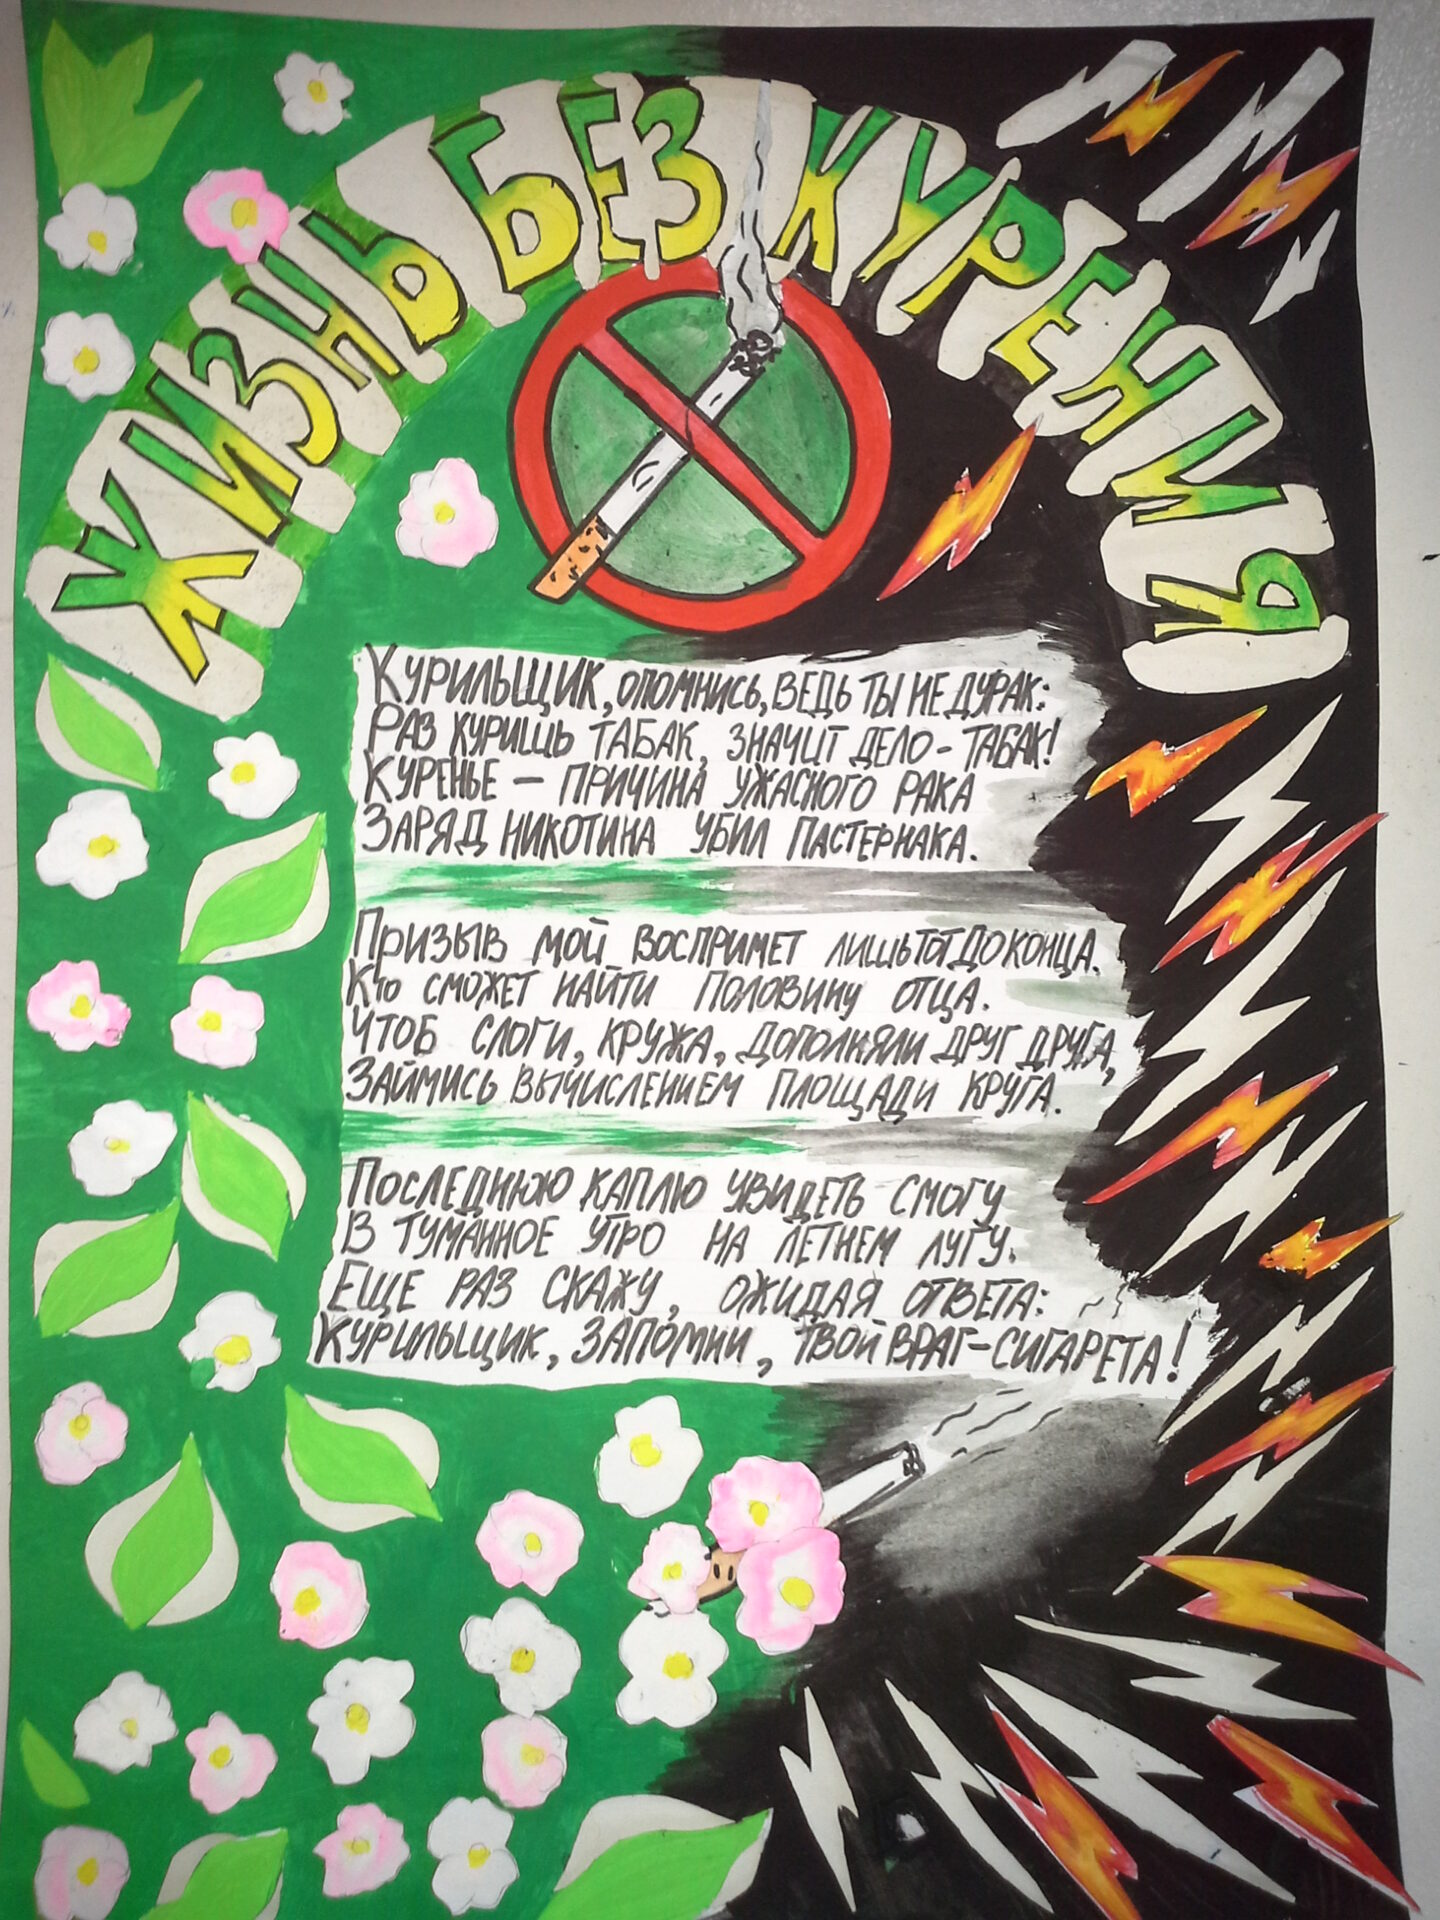 ЖИЗНЬ БЕЗ КУРЕНИЯ
КУРИЛЬЩИК, ОПОМНИСЬ, ВЕДЬ ТЫ НЕ ДУРАК:
РАЗ КУРИШЬ ТАБАК, ЗНАЧИТ ДЕЛО - ТАБАК!
КУРЕНЬЕ - ПРИЧИНА УЖАСНОГО РАКА
ЗАРЯД НИКОТИНА УБИЛ ПАСТЕРНАКА.
ПРИЗЫВ МОЙ ВОСПРИМЕТ ЛИШЬ ТОТ ДО КОНЦА.
КТО СМОЖЕТ НАЙТИ ПОЛОВИНУ ОТЦА.
ЧТОБ СЛОГИ, КРУЖА, ДОПОЛНЯЛИ ДРУГ ДРУГА,
ЗАЙМИСЬ ВЫЧИСЛЕНИЕМ ПЛОЩАДИ КРУГА.
ПОСЛЕДНЮЮ КАПЛЮ УВИДЕТЬ СМОГУ
В ТУМАННОЕ УТРО НА ЛЕТНЕМ ЛУГУ.
ЕЩЕ РАЗ СКАЖУ, ОЖИДАЯ ОТВЕТА:
КУРИЛЬЩИК, ЗАПОМНИ, ТВОЙ ВРАГ-СИГАРЕТА!